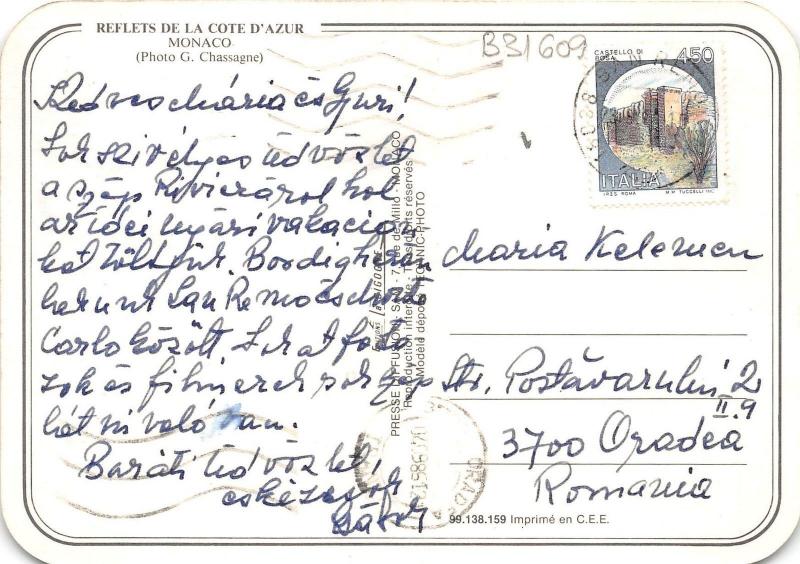 REFLETS DE LA COTE D'AZUR
MONACO
(Photo G. Chassagne)
B31609
CASTELLO DI
BOSA
450
ITALIA
I.P.Z.S. ROMA
M.M. TUCCELLI INC.
Kedves Mária és Gyuri!
Sok szivélyes üdvözlet
a szép Rivieráról hol
az idei nyári vakáción
kat töltjük. Bordigherán
San Remo és Monte
Carlo között. Sokat foto
zok és filmezek sok szép
látnivaló van.
Baráti üdvözlet,
és kézcsók
Gábor
PRESSE DIFFUSION, S.A.M. - 7, rue de Millo - MONACO
Reproduction interdite - Tous droits réservés
Modèle déposé TECHNIC-PHOTO
Maria Kelemen
Str. Postăvarului 2
II.9
3700 Oradea
Romania
ORADEA
99.138.159 Imprimé en C.E.E.